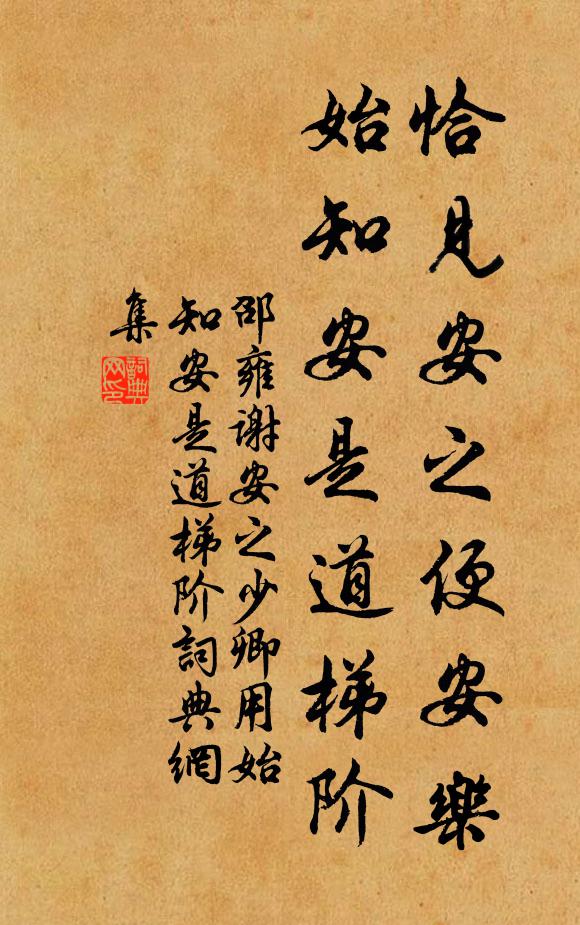 恰見安之便安樂
始知安是道梯阶
邵雍謝安之少卿用始
知安是道梯阶詞典網
集
詞典
网印